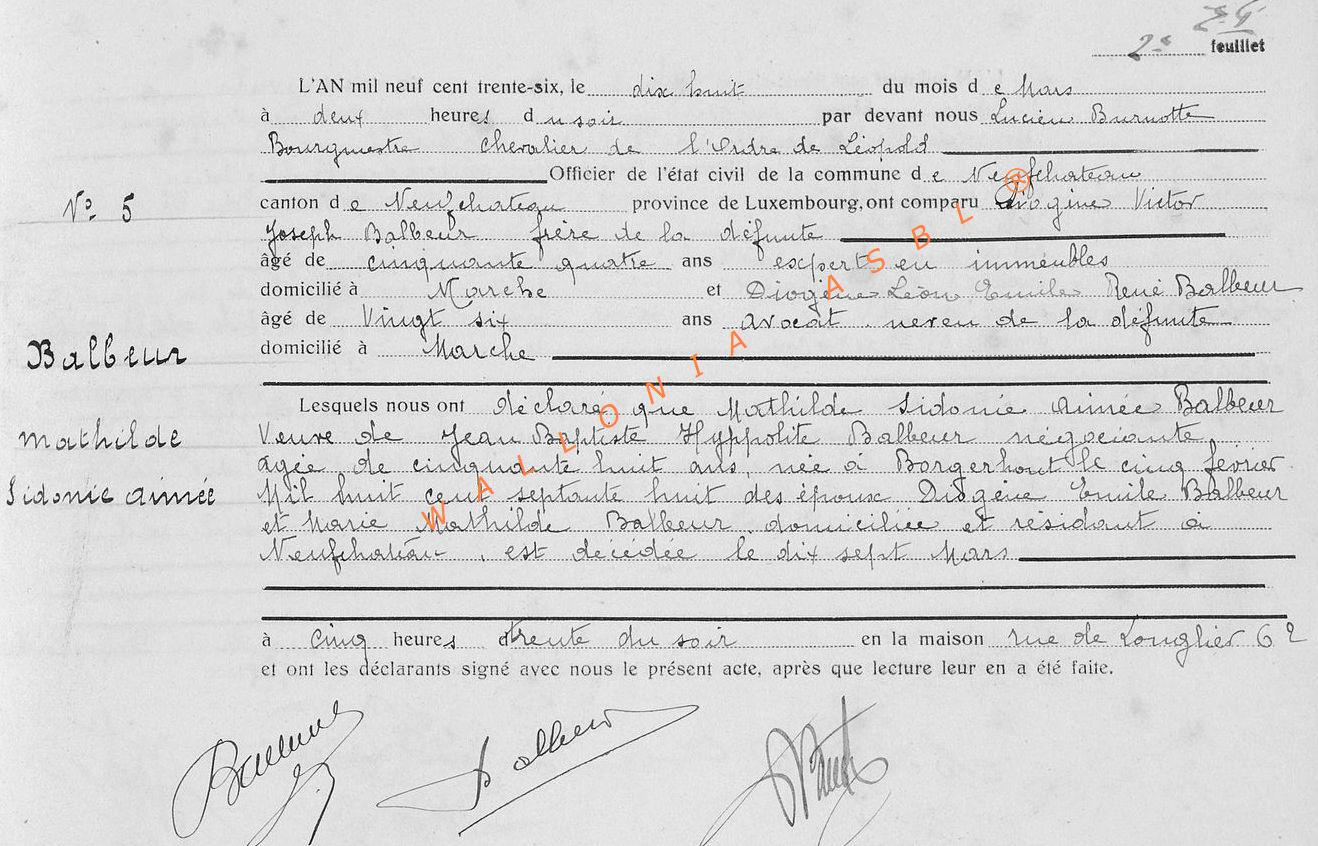 2e feuillet
L'AN mil neuf cent trente-six, le dix huit du mois d e Mars
à deux heures d u soir par devant nous Lucien Burnotte
Bourgmestre Chevalier de l'Ordre de Léopold
Officier de l'état civil de la commune d e Neufchateau
N° 5
canton d e Neufchateau province de Luxembourg, ont comparu Diogène Victor
Joseph Balbeur frère de la défunte
âgé de cinquante quatre ans expert en immeubles
domicilié à Marche et Diogène Léon Emile René Balbeur
âgé de Vingt six ans avocat neveu de la défunte
domicilié à Marche
Balbeur
Mathilde
Sidonie Aimée
Lesquels nous ont déclaré que Mathilde Sidonie Aimée Balbeur
Veuve de Jean Baptiste Hyppolite Balbeur négociante
agée de cinquante huit ans, née à Borgerhout le cinq février
Mil huit cent septante huit des époux Diogène Emile Balbeur
et Marie Mathilde Balbeur domiciliée et résidant à
Neufchateau, est décédée le dix sept Mars
à cinq heures trente du soir en la maison rue de Longlier 62
et ont les déclarants signé avec nous le présent acte, après que lecture leur en a été faite.
Balbeur
WALLONIA ASBL ®